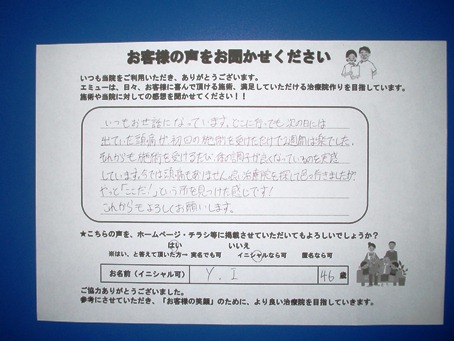 お客様の声をお聞かせください
いつも当院をご利用いただき、ありがとうございます。
エミューは、日々、お客様に喜んで頂ける施術、満足していただける治療院作りを目指しています。
施術や当院に対しての感想を聞かせてください！！
いつもお世話になっています。どこに行っても次の日には
出ていた頭痛が初回の施術を受けただけで2週間は楽でした。
それからも施術を受けるたび、体の調子が良くなっているのを実感
しています。今では頭痛もありません。治療院を探して色々行きましたが
やっと「ここだ!」という所を見つけた感じです!
これからもよろしくお願いします。
★こちらの声を、ホームページ・チラシ等に掲載させていただいてもよろしいでしょうか？
はい いいえ
※はい、と答えて頂いた方→ 実名でも可 イニシャルなら可 匿名なら可
お名前（イニシャル可） Y.I 46 歳
ご協力ありがとうございました。
参考にさせていただき、「お客様の笑顔」のために、より良い治療院を目指していきます。